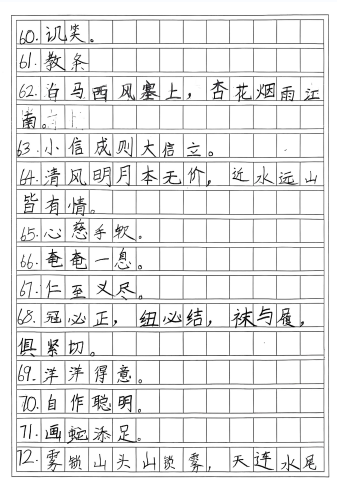 60.讥笑。
61.教条
62.白马西风塞上，杏花烟雨江
南。
63.小信成则大信立。
64.清风明月本无价，近水远山
皆有情。
65.心慈手软。
66.奄奄一息。
67.仁至义尽。
68.冠必正，纽必结，袜与履，
俱紧切。
69.洋洋得意。
70.自作聪明。
71.画蛇添足。
72.雾锁山头山锁雾，天连水尾